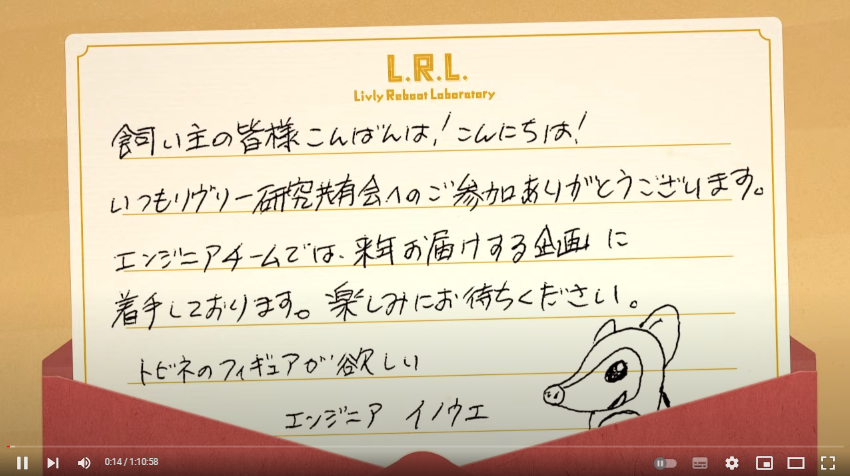 L.R.L.
Livly Reboot Laboratory
飼い主の皆様こんばんは！こんにちは！
いつもリヴリー研究共有会へのご参加ありがとうございます。
エンジニアチームでは、来年お届けする企画に
着手しております。楽しみにお待ちください。
トビネのフィギュアが欲しい
エンジニア イノウエ
0:14 / 1:10:58